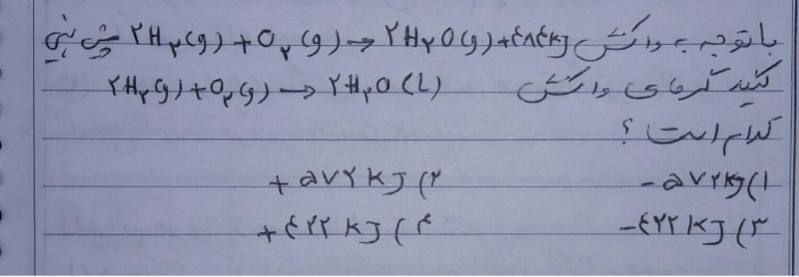 با توجه به واکنش ۲H۲(g) + O۲(g) → ۲H۲O(g) + ۴۸۴kJ پیش بینی
کنید گرمای واکنش ۲H۲(g) + O۲(g) → ۲H۲O(L)
کدام است ؟
۱) -۵۷۲kJ ۲) +۵۷۲kJ
۳) -۴۲۲kJ ۴) +۴۲۲kJ